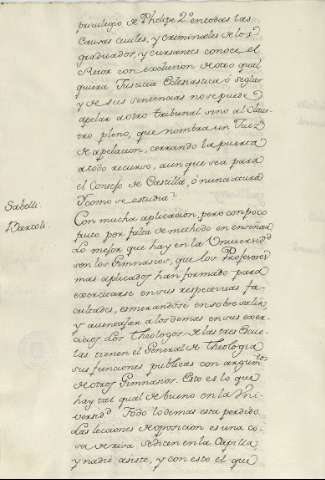 privilegio de Phelipe 2º en todas las
Causas civiles, y criminales de los
graduados, y cursantes conoce el
Retor con exclusion de otro qual
quiera Justicia Eclesiastica ò seglar
y de sus sentencias no se puede
apelar a otro tribunal sino al Claus
tro pleno, que nombra un Juez
de apelacion, cerrando la puerta
a todo recurso, aun que sea para
el Consejo de Castilla, ò nunciatura
Como se estudia?
Sabelli
Bartoli.
Con mucha aplicacion, pero con poco
fruto por falta de methodo en enseñar
Lo mejor que hay en la Universid
son los Gimnasios, que los Profesores
mas aplicados han formado para
exercitarse en sus respectivas fa
cultades, esmerandose en sobresalir
y aventajar a los demas en sus exer
cicios. Los Theologos de las tres Escue
las tienen el General de Theologia
sus funciones publicas con argum tos
de otros Gimnasios. Esto es lo que
hay tal qual de bueno en la Uni
versid. Todo lo demas esta perdido.
Las lecciones de oposicion es una co
sa de risa. Se dicen en la Capilla,
y nadie asiste, y con esto el que